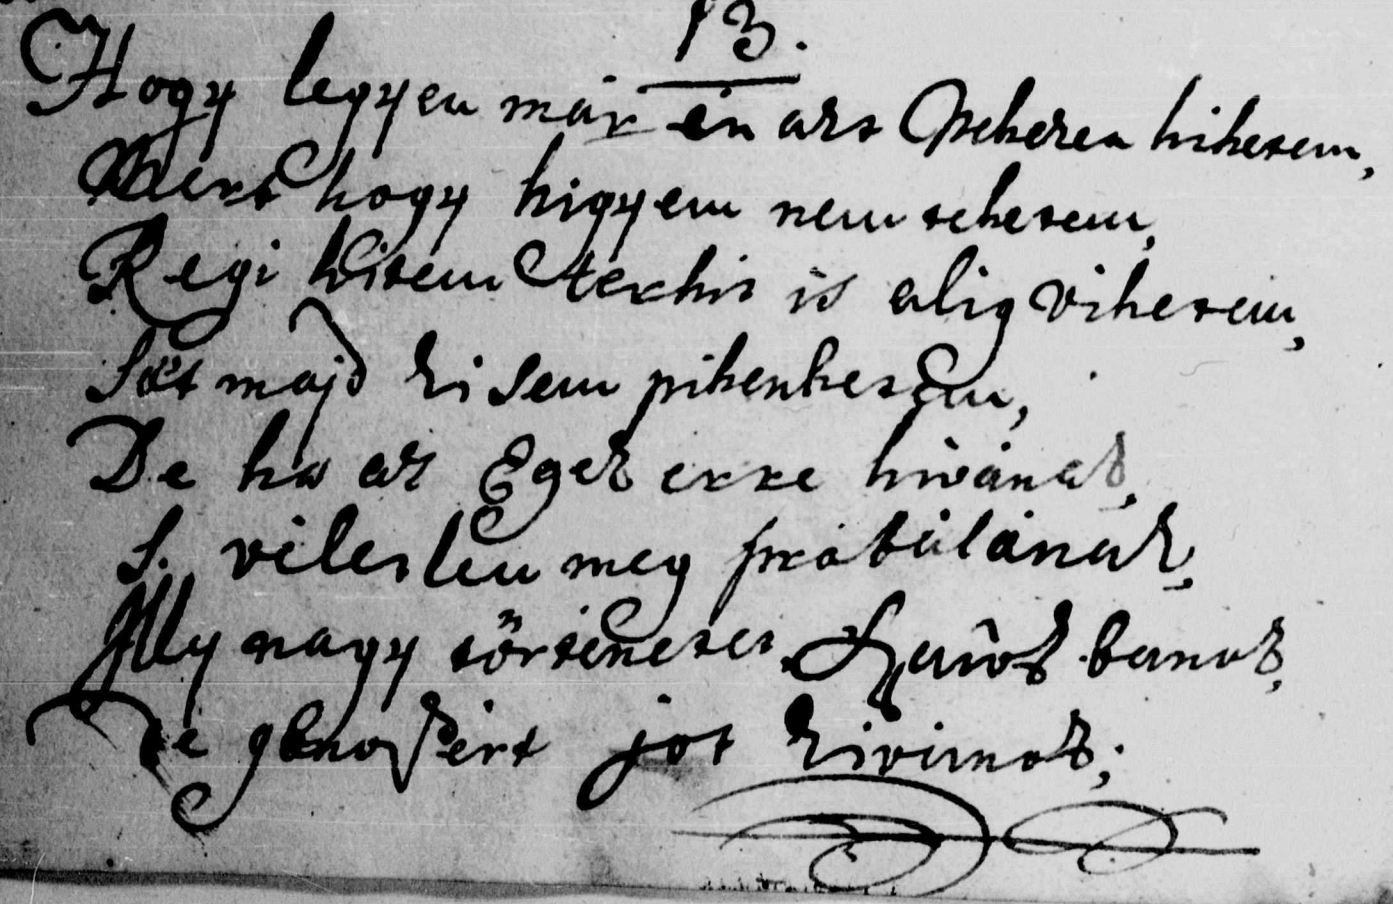 13.
Hogy legyen már én azt Neheren hihetem,
Mert hogy higyem nem tehetem,
Regi hitem terhit is alig vihetem,
Söt majd ki sem pihenhetem,
De ha az Egek erre hivának,
S. véletlen meg probálának,
Illy nagy törtenetet kanok,
De gonoszért jot kivánok;